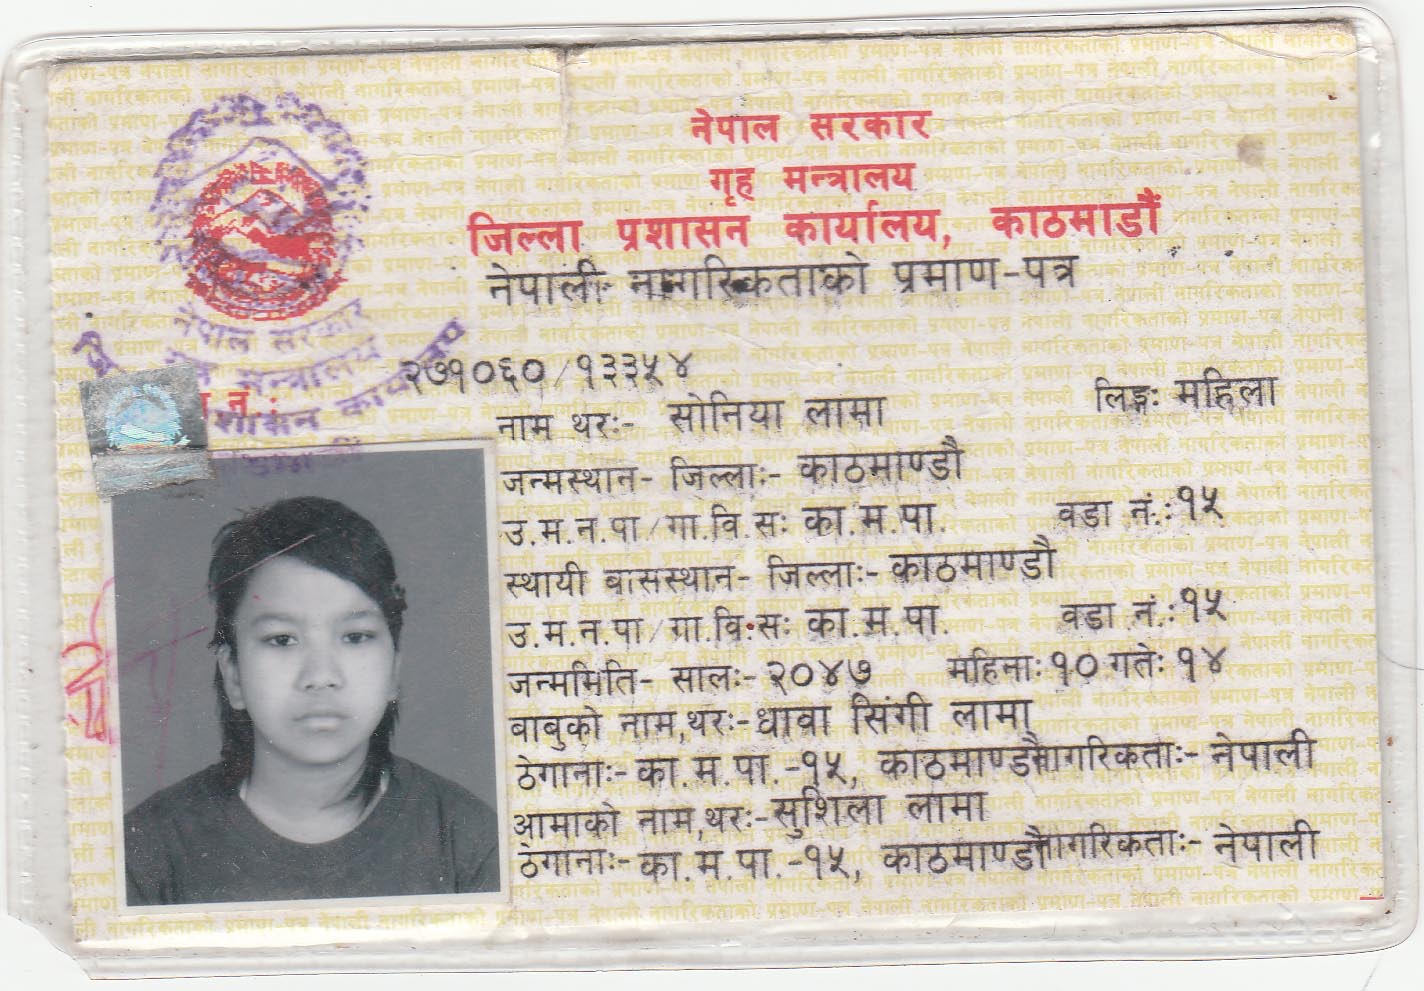 नेपाल सरकार
गृह मन्त्रालय
जिल्ला प्रशासन कार्यालय, काठमाडौं
नेपाली नागरिकताको प्रमाण-पत्र
नेपाल सरकार
मन्त्रालय
२७१०६०/१३३५४
नाम थरः- सोनिया लामा लिङ्गः महिला
जन्मस्थान- जिल्लाः- काठमाण्डौ
उ.म.न.पा/गा.वि.सः का.म.पा. वडा नं.: १५
स्थायी बासस्थान- जिल्लाः- काठमाण्डौ
उ.म.न.पा/गा.वि.सः का.म.पा. वडा नं.: १५
जन्ममिति- सालः- २०४७ महिनाः १० गतेः १४
बाबुको नाम,थरः- धावा सिंगी लामा
ठेगानाः- का.म.पा.-१५, काठमाण्डौ नागरिकताः- नेपाली
आमाको नाम,थरः- सुशिला लामा
ठेगानाः- का.म.पा.-१५, काठमाण्डौ नागरिकताः- नेपाली